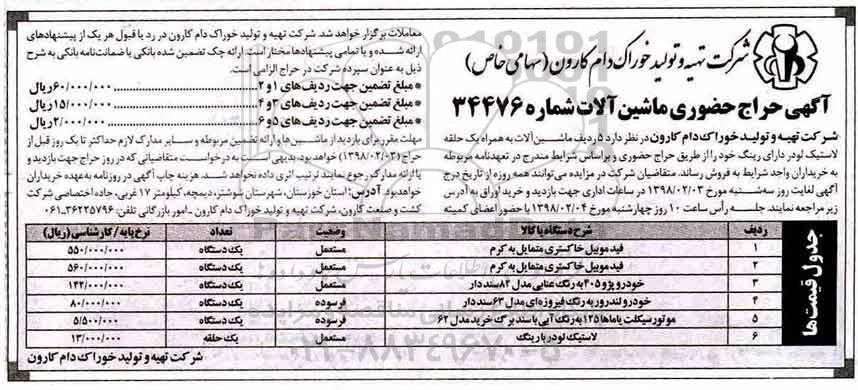 شرکت تهیه و تولید خوراک دام کارون (سهامی خاص)
آگهی حراج حضوری ماشین آلات شماره ۳۴۴۷۶
شرکت تهیه و تولید خوراک دام کارون در نظر دارد ۵ ردیف ماشین آلات به همراه یک حلقه
لاستیک لودر دارای رینگ خود را از طریق حراج حضوری و براساس شرایط مندرج در تعهدنامه مربوطه
به خریداران واجد شرایط به فروش رساند. متقاضیان شرکت در مزایده می‌توانند همه روزه از تاریخ درج
آگهی لغایت روز سه‌شنبه مورخ ۱۳۹۸/۰۲/۰۳ در ساعات اداری جهت بازدید و خرید اوراق به آدرس
زیر مراجعه نمایند. جلسه رأس ساعت ۱۰ روز چهارشنبه مورخ ۱۳۹۸/۰۲/۰۴ با حضور اعضای کمیته
معاملات برگزار خواهد شد. شرکت تهیه و تولید خوراک دام کارون در رد یا قبول هر یک از پیشنهادهای
ارائه شده و یا تمامی پیشنهادها مختار است. ارائه چک تضمین شده بانکی یا ضمانت‌نامه بانکی به شرح
ذیل به عنوان سپرده شرکت در حراج الزامی است.
* مبلغ تضمین جهت ردیف های ۱ و ۲ ........ ۶۰/۰۰۰/۰۰۰ ریال
* مبلغ تضمین جهت ردیف های ۳ و ۴ ........ ۱۵/۰۰۰/۰۰۰ ریال
* مبلغ تضمین جهت ردیف های ۵ و ۶ ........ ۲/۰۰۰/۰۰۰ ریال
مهلت مقرر برای بازدید از ماشین‌ها و ارائه تضمین مربوطه و سایر مدارک لازم حداکثر تا یک روز قبل از
حراج (۱۳۹۸/۰۲/۰۳) خواهد بود. بدیهی است به درخواست متقاضیانی که در روز حراج جهت بازدید و
یا ارائه مدارک رجوع نمایند ترتیب اثری داده نخواهد شد. هزینه چاپ آگهی در روزنامه به عهده خریداران
خواهد بود. آدرس: استان خوزستان، شهرستان شوشتر، دیمچه، کیلومتر ۱۷ غربی، جاده اختصاصی شرکت
کشت و صنعت کارون، شرکت تهیه و تولید خوراک دام کارون - امور بازرگانی تلفن: ۳۶۲۲۵۷۹۶-۰۶۱
جدول قیمت ها
ردیف شرح دستگاه یا کالا وضعیت تعداد نرخ پایه / کارشناسی (ریال)
۱ فید موبیل خاکستری متمایل به کرم مستعمل یک دستگاه ۵۵۰/۰۰۰/۰۰۰
۲ فید موبیل خاکستری متمایل به کرم مستعمل یک دستگاه ۵۶۰/۰۰۰/۰۰۰
۳ خودرو پژو ۴۰۵ به رنگ عنابی مدل ۸۲ سنددار مستعمل یک دستگاه ۱۴۲/۰۰۰/۰۰۰
۴ خودرو لندرور به رنگ فیروزه‌ای مدل ۶۳ سنددار فرسوده یک دستگاه ۸۰/۰۰۰/۰۰۰
۵ موتورسیکلت یاماها ۱۲۵ به رنگ آبی با سند برگ خرید مدل ۶۲ فرسوده یک دستگاه ۵/۵۰۰/۰۰۰
۶ لاستیک لودر با رینگ مستعمل یک حلقه ۱۳/۰۰۰/۰۰۰
شرکت تهیه و تولید خوراک دام کارون